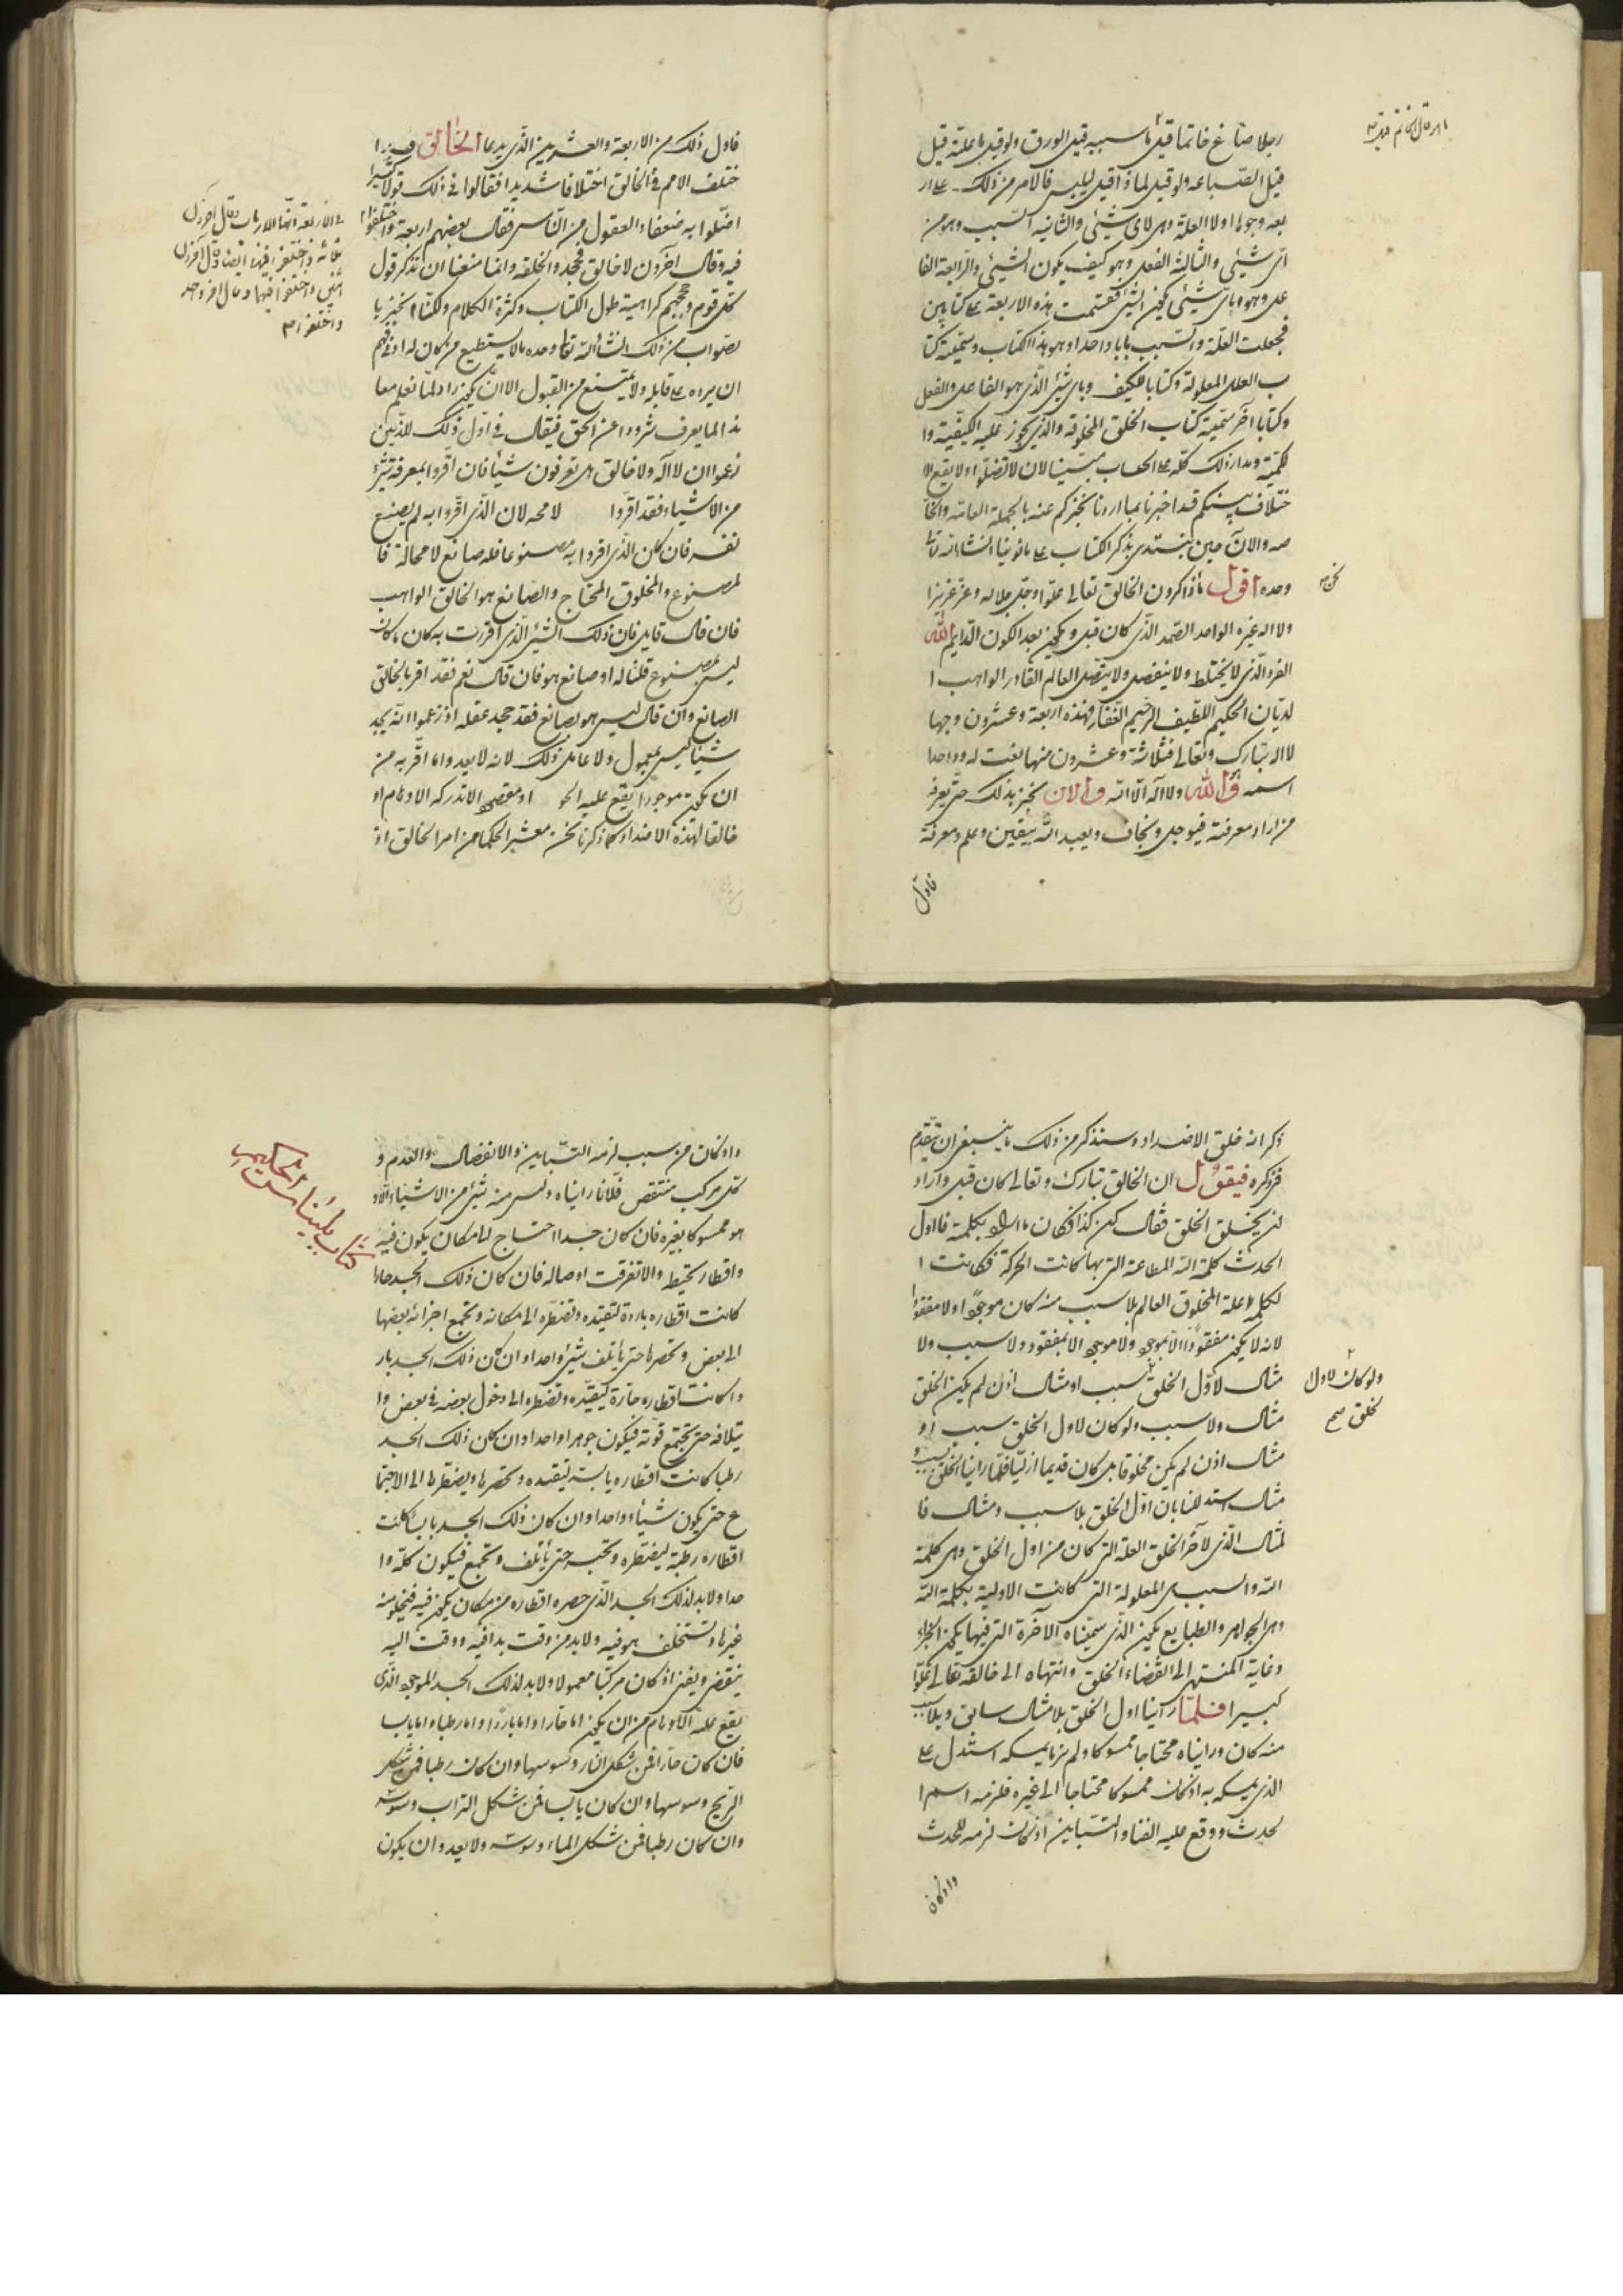 رجلا صاغ خاتما قيل ما سببه قيل الورق ولو قيل ما علته قيل
قيل الصباغه ولو قيل لماذا قيل ليلبس فالامر من ذلك على ار
بعه وجوه اولا العلة وهى لاى شيئى والثانيه السبب وهو من
اى شيئى والثالثة الفعل وهو كيف يكون الشيئى والرابعة الفا
عل وهو باى شيئى يكون الشئ فقسمت هذه الاربعة على كتابين
فجعلت العلة والسبب بابا واحدا وهو هذا الكتاب وسميته كتا
ب العلل المعلولة وكتابا للكيف وباى شئ الذى هو الفاعل والفعل
وكتابا آخر سميته كتاب الخلق المخلوقه والذى يجوز عليه الكيفية وا
لكمية ومدار ذلك كله على الحساب مبينا لان لا تضلوا ولا يقع الا
ختلاف بينكم قد اخبرنا بما اردنا نخبركم عنه بالجملة العامه والخا
صه والآن حين نبتدى بذكر الكتاب على ما نوينا انشاء الله تعالى
وحده اقول ما ذاكرون الخالق تعالى علوا وجل جلاله وعز عزيزا
ولا اله غيره الواحد الصمد الذى كان قبل ويكون بعد الكون الدايم الله
الفرد الذى لا يختلط ولا ينفصل ولا يتصل العالم القادر الواهب ا
لديان الحكيم اللطيف الرحيم الغفار فهذه اربعة وعشرون وجها
لا اله تبارك وتعالى فثلاثة وعشرون منها نعت له وواحدا
اسمه هو الله ولا اله الا الله والان نخبر بذلك حتى يعرفه
من اراد معرفته فيوجل ويخاف ويعبد الله بيقين وعلم ومعرفة
فاول
نحن
فاول ذلك من الاربعة والعشرين الذى يدعا الخالق
ختلف الامم فى الخالق اختلافا شديدا فقالوا فى ذلك قولا كثيرا
اضلوا به ضعفاء العقول من الناس فقال بعضهم اربعة واختلفوا
فيه وقال آخرون لا خالق فجحد والخلقه وانما منعنا ان نذكر قول
كل قوم وحججهم كراهية طول الكتاب وكثرة الكلام ولكنا نخبر با
لصواب من ذلك انشاء الله تعالى وحده ما لا يستطيع من كان له ادنى فهم
ان يرده على قايله ولا يمتنع من القبول الا ان يكون راد لما نعلم معا
ندا لما يعرف شرودا عن الحق فيقال فى اول ذلك للذين
زعموا ان لا اله ولا خالق هل تعرفون شيأ فان اقروا بمعرفة شئ
من الاشياء فقد اقروا لا محه لان الذى اقروا به لم يصنع
نفسه فان كان الذى اقروا به مصنوعا فله صانع لا محالة فا
لمصنوع والمخلوق المحتاج والصانع هو الخالق الواهب
فان قال قايل فان ذلك الشئ الذى اقررت به كان ما كان
ليس بمصنوع قلنا له او صانع هو فان قال نعم فقد اقر بالخالق
الصانع وان قال ليس هو بصانع فقد جحد عقله اذ زعموا انه يجد
شيئا ليس بمعمول ولا عامل ذلك لانه لا يعدوا ما اقر به من
ان يكون موجودا يقع عليه الحو او مفصحو لا تدركه الاوهام او
خالقا لهذه الاضداد كما ذكرنا نحن معشر الحكما من امر الخالق اذ
فى الاربعة انها الارباب وقال آخرون
ثلاثه واختلفوا فيها ايضا وقال آخرون
اثنين واختلفوا فيها وقال اخر واحد
واختلفوا
ذكر انه خلق الاضداد وسنذكر من ذلك ما ينبغى ان يتقدم
فى ذكره فيقول ان الخالق تبارك وتعالى كان قبل واراد
ان يخلق الخلق فقال كن كذا فكان ما اراد بكلمته فاول
الحدث كلمة الله المطاعة التى بها كانت الحركة فكانت ا
لكلمة علة المخلوق العالم بلا سبب منه كان موجودا ولا مفقودا
لانه لا يكون مفقودا الا بموجود ولا موجود الا بمفقود ولا سبب ولا
مثال لاول الخلق سبب او مثال اذن لم يكن الخلق
مثال ولا سبب ولو كان لاول الخلق سبب او
مثال اذن لم يكن مخلوقا بل كان قديما ازليا فلما راينا الخلق بسبب و
مثال استدللنا بان اول الخلق بلا سبب ومثال فا
لمثال الذى لآخر الخلق العلة التى كان من اول الخلق وهى كلمة
الله والسبب هى المعلولة التى كانت الاولية بكلمة الله
وهى الجواهر والطبايع يكون الذى سميناه الآخرة التى فيها يكون الجزاء
وغاية المنتهى الى انقضاء الخلق وانتهاه الى خالقه تعالى علوا
كبيرا فلما راينا اول الخلق بلا مثال سابق وبلا سبب
منه كان ورايناه محتاجا ممسوكا ولم نر ما يمسكه استدل على
الذى يمسكه به اذ كان ممسوكا محتاجا الى غيره فلزمه اسم ا
لحدث ووقع عليه الفنا والتباين اذ كان لزمه للحدث
واذ كان
ولو كان لاول
لخلق صح
واذ كان من سبب لزمه التباين والانفصال والعدم و
كل مركب منتقض فلانا رايناه وليس منه شئ من الاشياء الا و
هو ممسوكا بغيره فان كان جسدا احتاج الى مكان يكون فيه
واقطار تحيط والا تفرقت اوصاله فان كان ذلك الجسد حارا
كانت اقطاره باردة لتقيده وتضطره الى مكانه وتجمع اجزائه بعضها
الى بعض وتحصرها حتى يأتلف شئ واحدا وان كان ذلك الجسد بار
دا كانت اقطاره حارة لتقيده وتضطره الى دخول بعضه فى بعض وا
يتلافه حتى تجتمع قوته فيكون جوهرا واحدا وان كان ذلك الجسد
رطبا كانت اقطاره يابسة لتقيده وتحصرها ويضطرها الى الاجتما
ع حتى يكون شيأ واحدا وان كان ذلك الجسد يابسا كانت
اقطاره رطبة ليضطره وتحبسه حتى يأتلف وتجمع فيكون كله وا
حدا ولا بد لذلك الجسد الذى حصره اقطاره من مكان يكون فيه فيخلو منه
غيرها ويستخلف هو فيه ولا بد من وقت بدا فيه ووقت اليه
ينقضى ويفنى اذ كان مركبا معمولا ولا بد لذلك الجسد الموجود الذى
يقع عليه الاوهام من ان يكون اما حارا واما باردا واما رطبا واما يابسا
فان كان حارا فمن شكل النار وسوسها وان كان رطبا فمن شكل
الريح وسوسها وان كان يابسا فمن شكل التراب وسوسه
وان كان رطبا فمن شكل الماء وسوسه ولا يعدو ان يكون
كتاب بليناس الحكيم